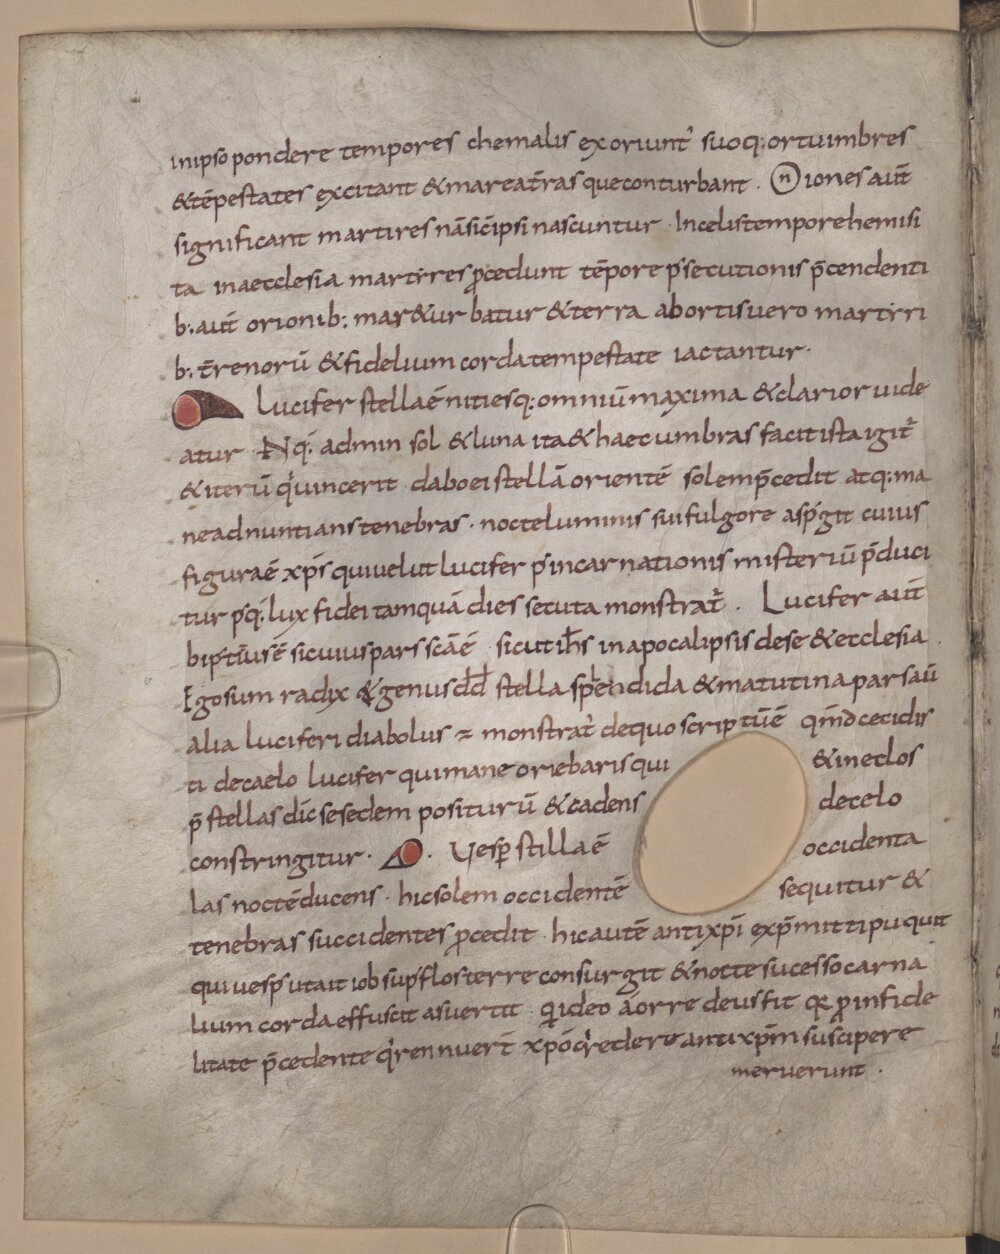 inipso pondere tempores chemalis exoriunt᷑ suoq; ortuimbres
&tēpestates excitant &mareat̄ras queconturbant · Ōiones aut̄
significant martires nāsicīpsi nascuntur · Incelistemporehemisi
ta inaecclesia martyres ꝓcedunt tēpore p̱secutionis p̄cendenti
b; aut̄ orionib; mar&urbatur &terra abortisuero martyri
b; t̄renorū &fidelium cordatempestate iactantur ·
Lucifer stellaē nitiesq; omniūmaxima &clarior uide
atur · Nq; admin sol &luna ita&haecumbras facitistaigit᷑
&iterū qͥuincerit daboeistellā orientē solemp̄cedit atq; ma
neadnuntians tenebras · nocteluminis suifulgore asp̱git cuius
figuraē xp̄s quiuelut lucifer p̱incarnationis misteriū p̄duci
tur p̱q; lux fidei tamquā dies secuta monstrat᷑ . Lucifer aut̄
bip̱tūsē sicuiuspars scāē sicut ih̄s inapocalipsis dese &ecclesia
Egosum radix &genus dd̄ stella splendida &matutina parsaū
alia luciferi diabolus ÷ monstrat᷑ dequo scriptūē qm̄dcecidis
ti decaelo lucifer quimane oriebaris qui &ineclos
p̄ stellas dic̄ sesedem positurū &cadens decelo
constringitur · Uesp̱ stillaē occidenta
las noctēducens · hicsolem occidentē sequitur &
tenebras succidentes ꝓcedit hicautē antixp̄i exp̄mittipuquit
quiuesp̱ utait iob sup̱flosterre consurgit &nocte sucessocarna
lium corda effuscit asuertit Qͥideo aorre deusfit qꝛ ꝓinfide
litate p̄cedente qͥrennuer̄t xp̄ocr̄edere antixp̄m suscipere
meruerunt ·